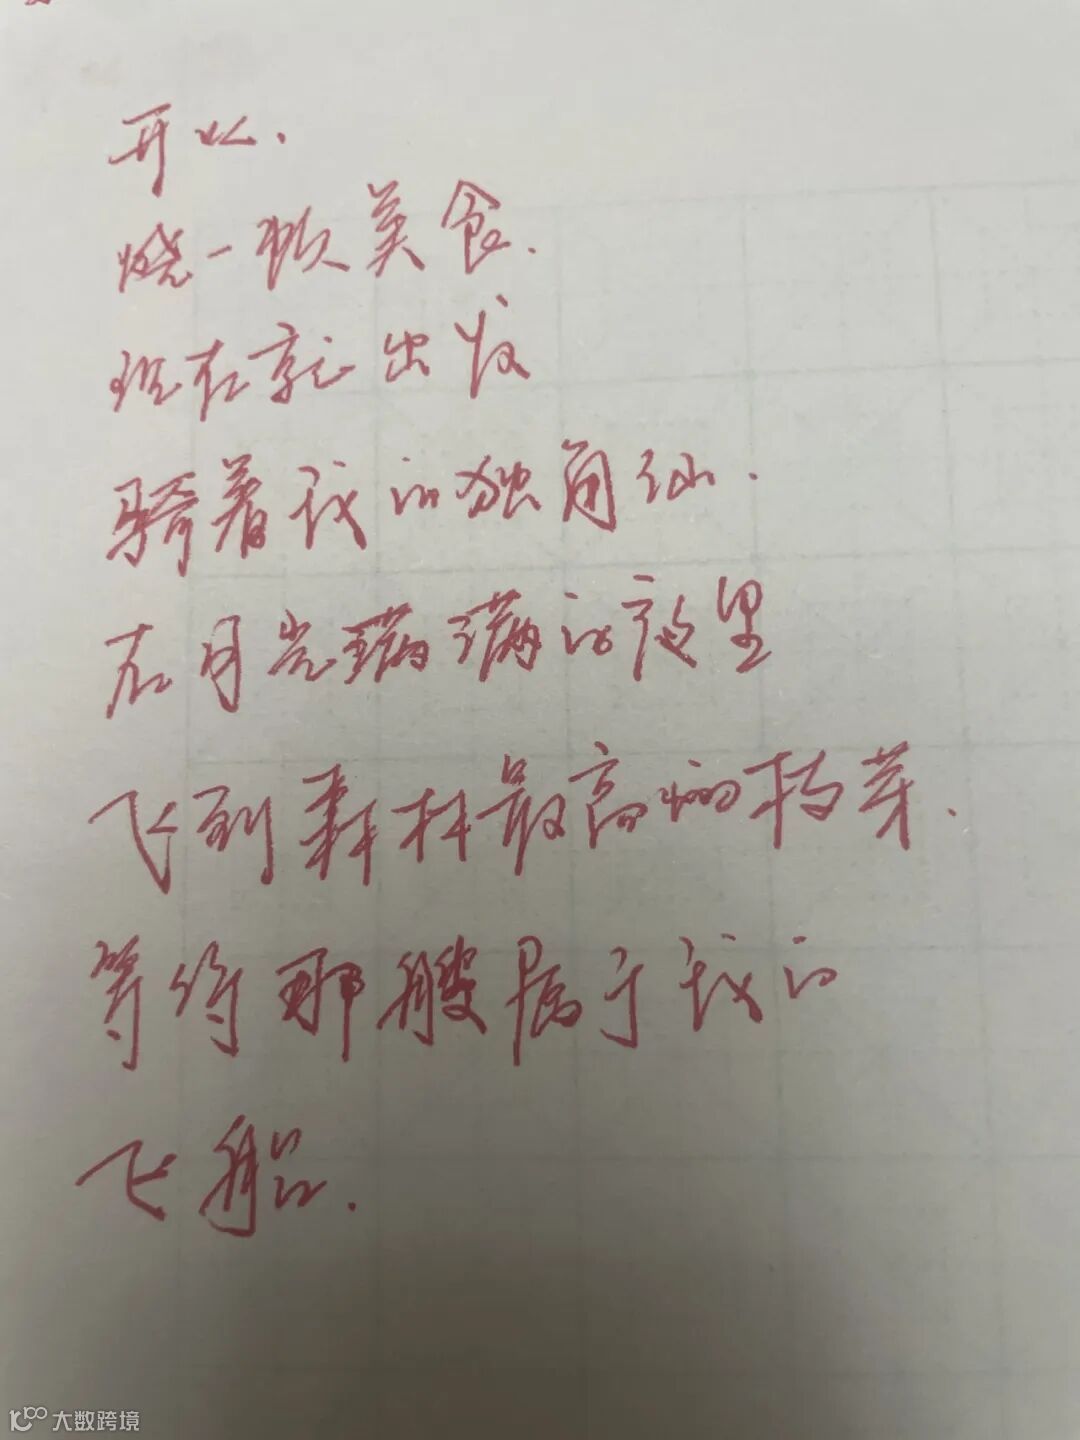 开心.
烧一顿美食.
现在就出发
骑着我的独角仙.
在月光满满的夜里
飞到森林最高的枝芽.
等待那艘属于我的
飞船.
大数跨境